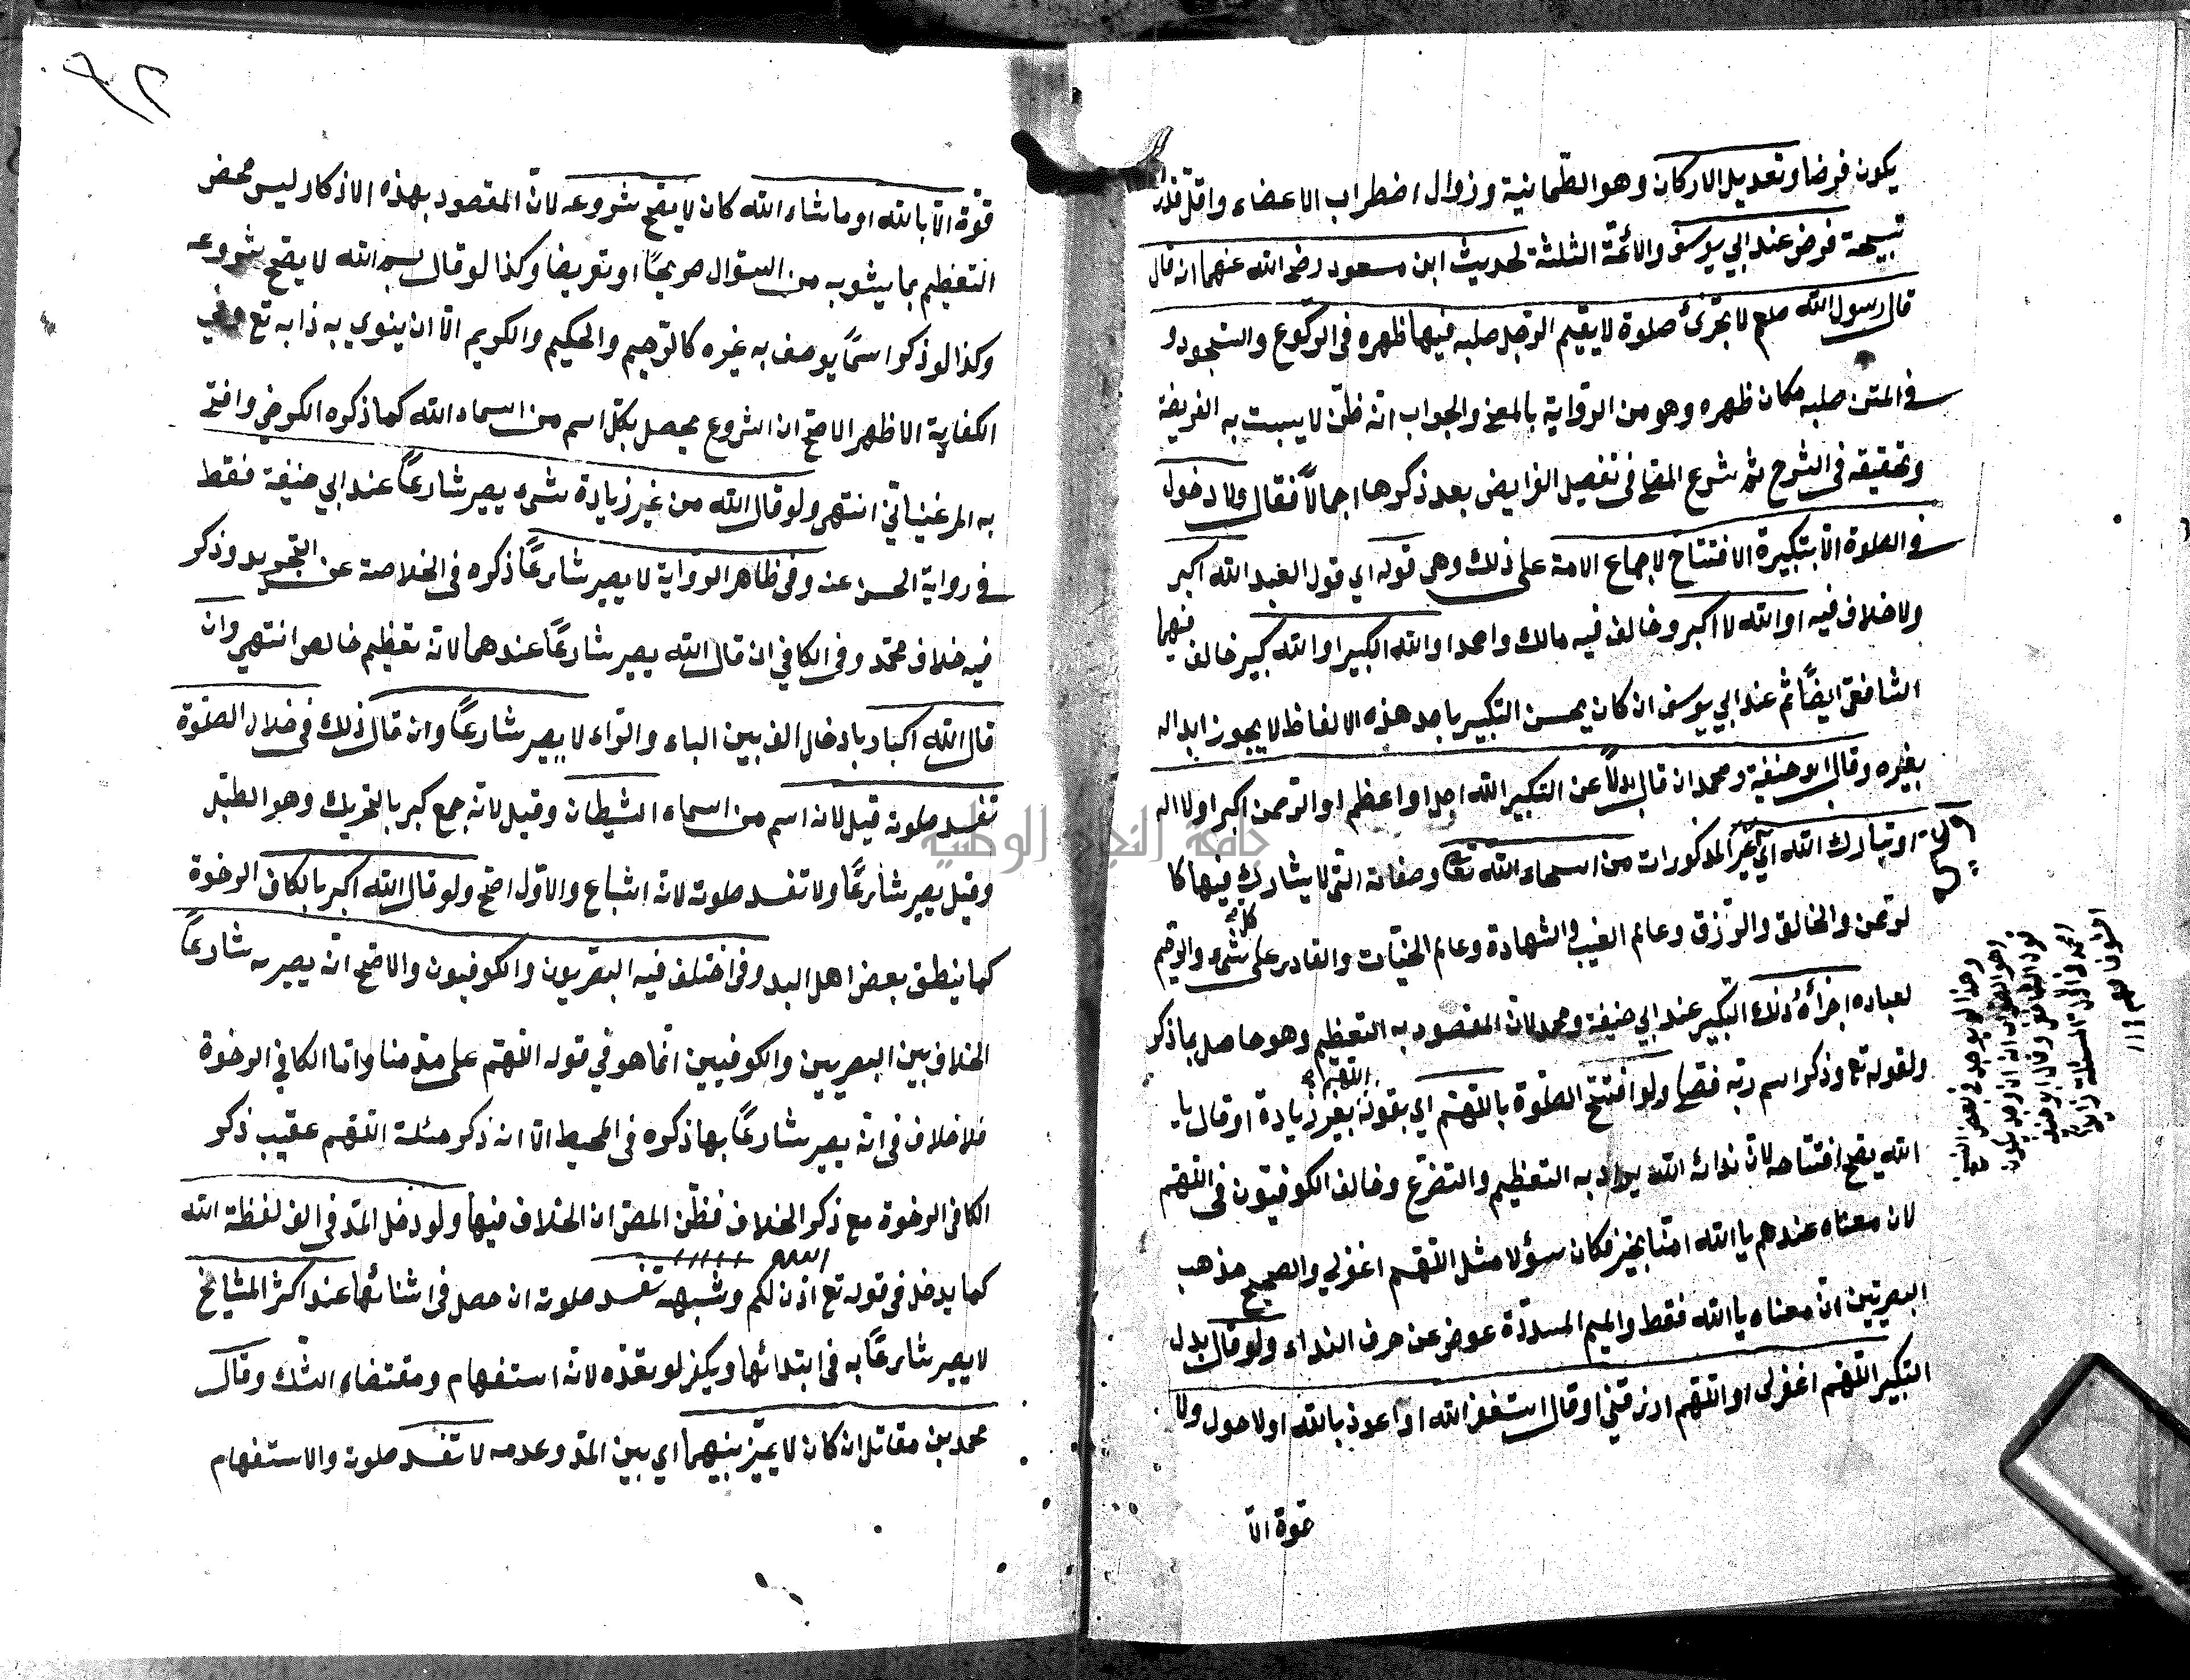 يكون فرضا وتعديل الاركان وهو الطمانية وزوال اضطراب الاعضاء واقل قدر
تسبيحة فرض عند ابي يوسف والائمة الثلثة لحديث ابن مسعود رضي الله عنهما انه قال
قال رسول الله صلعم لا تجزئ صلوة لا يقيم الرجل صلبه فيها ظهره في الركوع والسجود و
في المتن صلبه مكان ظهره وهو من الرواية بالمعنى والجواب انه ظني لا يثبت به الفريضة
وتحقيقه في الشرح ثم شرع المص في تفصيل الفرايض بعد ذكرها اجمالاً فقال ولا دخول
في الصلوة الا بتكبيرة الافتتاح لاجماع الامة على ذلك وهي قوله اي قول العبد الله اكبر
ولا خلاف فيه او الله الاكبر وخالف فيه مالك واحمد او الله الكبير او الله كبير خالف فيهما
الشافعي ايضاً ثم عند ابي يوسف ان كان يحسن التكبير باحد هذه الالفاظ لا يجوز ابداله
بغيره وقال ابو حنيفة ومحمد ان قال بدلاً عن التكبير الله اجل او اعظم او الرحمن اكبر او لا اله
او تبارك الله اي غير المذكورات من اسماء الله تعالى وصفاته التي لا يشارك فيها كا
لرحمن والخالق والرزق وعالم الغيب والشهادة وعالم الخفيات والقادر على كل شيء والرحيم
لعباده اجزأه ذلك التكبير عند ابي حنيفة ومحمد لان المقصود به التعظيم وهو حاصل بما ذكر
ولقوله تع وذكر اسم ربه فصلى ولو افتتح الصلوة باللهم اي بقوله اللهم بغير زيادة او قال يا
الله يصح افتتاحه لان ندائه الله يراد به التعظيم والتضرع وخالف الكوفيون في اللهم
لان معناه عندهم يا الله امنا بخير فكان سؤلا مثل اللهم اغفرلي والصحيح مذهب
البصريين ان معناه يا الله فقط والميم المسددة عوض عن حرف النداء ولو قال بدل
التكبير اللهم اغفرلي او اللهم ارزقني او قال استغفر الله او اعوذ بالله او لا حول ولا
قوة الا
قوة الا بالله او ما شاء الله كان لا يصح شروعه لان المقصود بهذه الاذكار ليس محض
التعظيم بما يشوبه من السؤال صريحاً او تعريضا وكذا لو قال بسم الله لا يصح شروعه
وكذا لو ذكر اسماً يوصف به غيره كالرحيم والحكيم والكريم الا ان ينوي به ذاته تع وفي
الكفاية الاظهر الاصح ان الشروع يحصل بكل اسم من اسماء الله كما ذكره الكرخي وافتى
به المرغيناني انتهى ولو قال الله من غير زيادة شيء يصير شارعاً عند ابي حنيفة فقط
في رواية الحسن عنه وفي ظاهر الرواية لا يصير شارعاً ذكره في الخلاصة عن التجريد وذكر
فيه خلاف محمد وفي الكافي ان قال الله يصير شارعاً عندهما لانه تعظيم خالص انتهي وان
قال الله اكبار بادخال الف بين الباء والراء لا يصير شارعاً وان قال ذلك في خلال الصلوة
تفسد صلوته قيل لانه اسم من اسماء الشيطان وقيل لانه جمع كبر بالتحريك وهو الطبل
وقيل يصير شارعاً ولا تفسد صلوته لانه اشباع والاول اصح ولو قال الله اكبر بالكاف الرخوة
كما ينطق بعض اهل البدو فاختلف فيه البصريون والكوفيون والاصح انه يصير به شارعاً
الخلاف بين البصريين والكوفيين انما هو في قوله اللهم على ما قدمنا واما الكافي الرخوة
فلا خلاف في انه يصير شارعاً بها ذكره في المحيط الا انه ذكر مسئلة اللهم عقيب ذكر
الكافي الرخوة مع ذكر الخلاف فظن المص ان الخلاف فيها ولو دخل المد في الف لفظة الله
كما يدخل في قوله تع الله اذن لكم وشبهه تفسد صلوته ان حصل في اثنائها عند اكثر المشايخ
لا يصير شارعاً به في ابتدائها ويكفر لو تعمده لانه استفهام ومقتضاه الشك وقال
محمد بن مقاتل ان كان لا يميز بينهما اي بين المد وعدمه لا تفسد صلوته والاستفهام
جامعة النجاح الوطنية